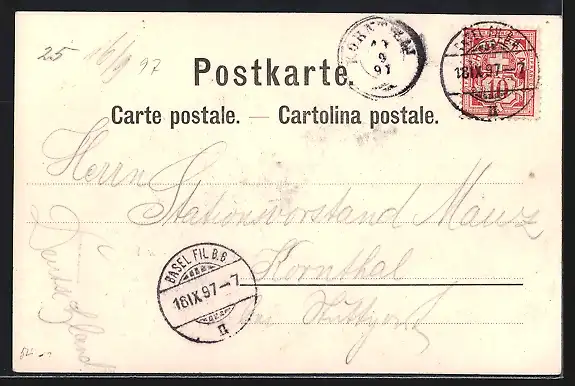 25 16/9 97
Postkarte.
Carte postale. — Cartolina postale.
KORNTAL
17
9
97
BASEL FIL. B.B
18 IX 97-7
II
10
Herrn
Stationsvorstand Mauz
Kornthal
bei Stuttgart
Deutschland
BASEL FIL. B.B
18 IX 97-7
II